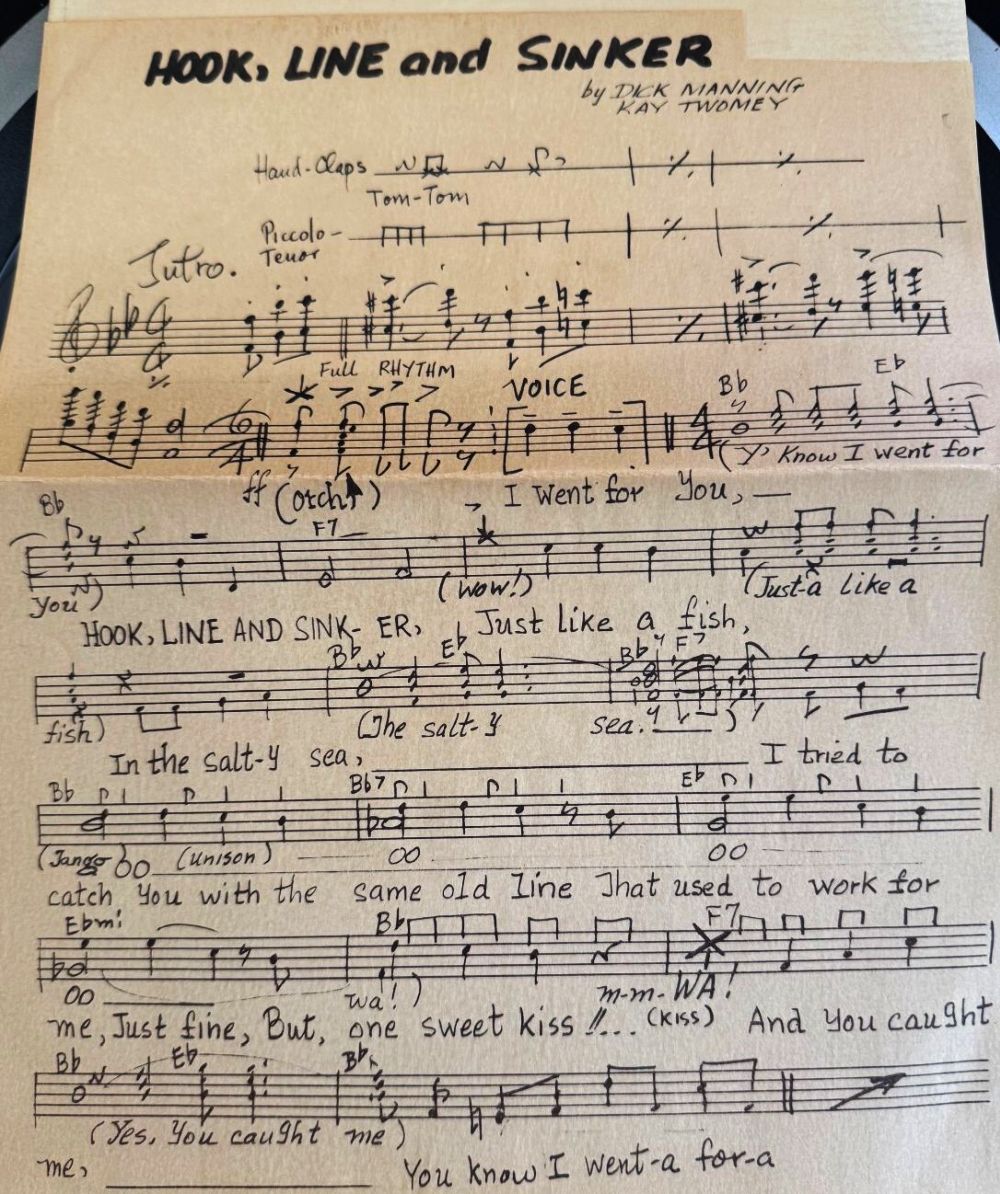 HOOK, LINE and SINKER
by DICK MANNING
KAY TWOMEY
Hand-Claps
Tom-Tom
Piccolo-
Tenor
Intro.
Full RHYTHM
VOICE
Bb Eb
(Y' Know I went for
ff (orch.)
I Went for You, —
Bb F7
You) (Wow!) (Just-a like a
HOOK, LINE AND SINK- ER, Just like a fish,
Bb Eb Bb F7
fish) (The salt-y sea. )
In the salt-y sea, I tried to
Bb Bb7 Eb
(Tango) OO (Unison) OO OO
catch You with the same old Line That used to work for
Ebmi Bb F7
OO Wa!) m-m-WA!
me, Just fine, But, one sweet kiss!!... (KISS) And You caught
Bb Eb Bb
(Yes, You caught me)
me, You know I went-a for-a